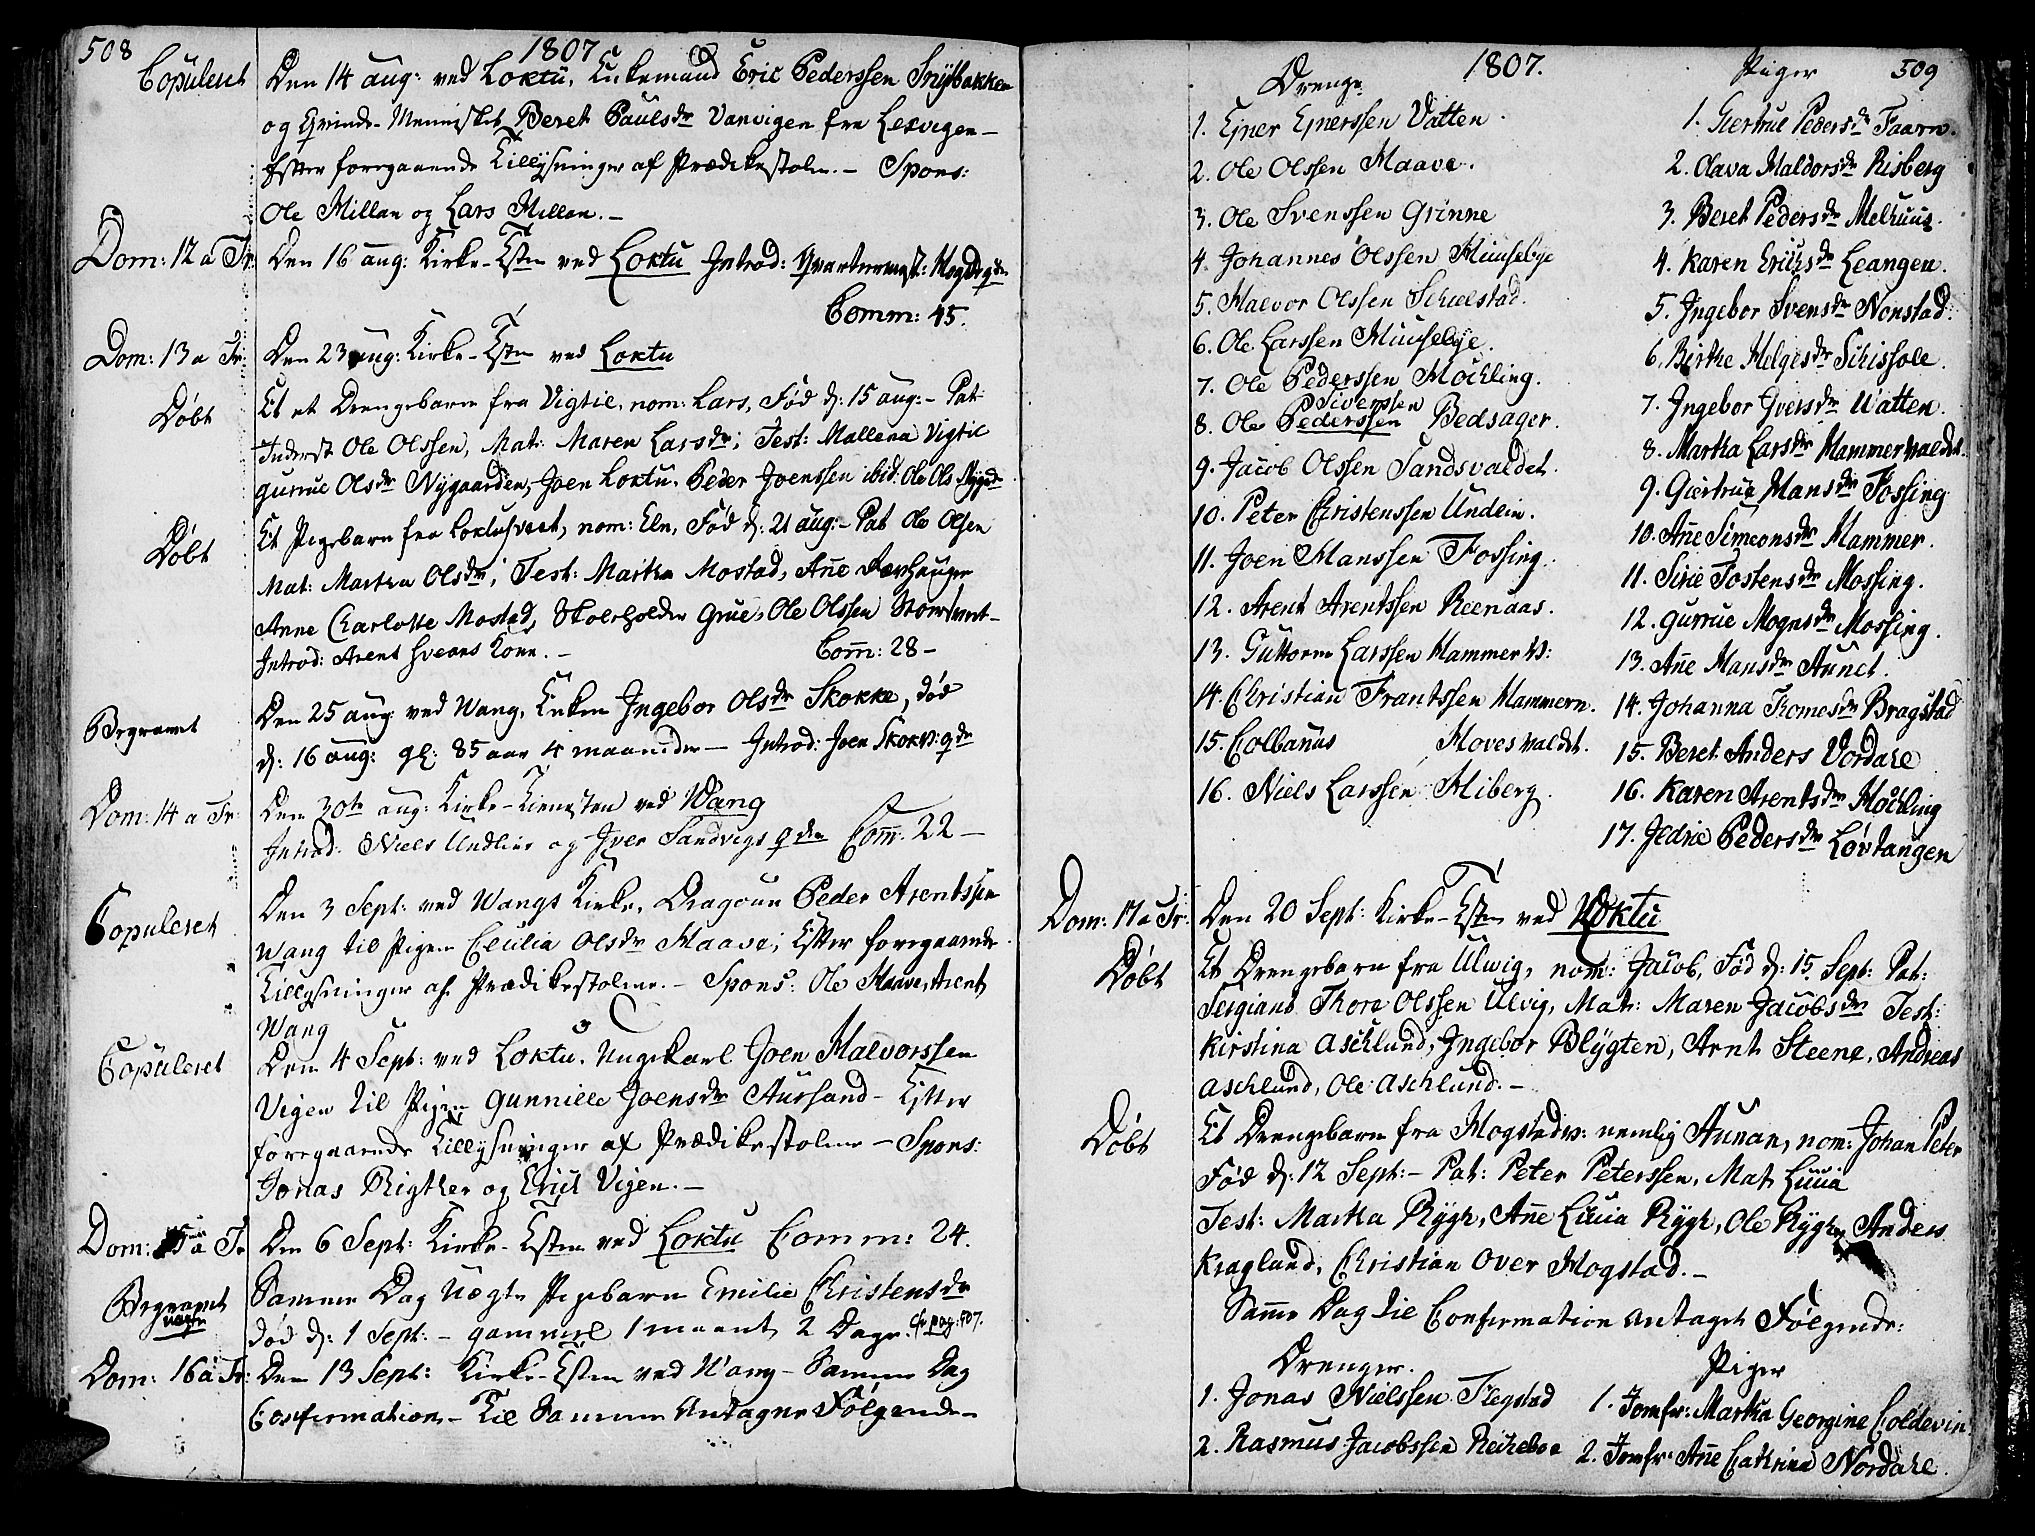 508
1807
Copuleret
Den 14 aug: ved Loktu, Enkemand Eric Pederssen Snylbakken
og Qvinde-Mennisket Beret Paulsdr Vanvigen fra Lexvigen –
Efter foregaaende Tillysninger af Prædikestolen. – Spons:
Ole Millan og Lars Millan. –
Dom: 12 a Tr:
Den 16 aug: Kirke-Tsten ved Loktu Introd:
Comm: 45.
Dom: 13 a Tr:
Den 23 aug: Kirke-Tsten ved Loktu
Døbt
Et et Drengebarn fra Vigtil, nom: Lars, Fød d: 15 aug: – Pat
Inderst Ole Olssen, Mat: Maren Larsdr; Test: Mallena Vigtil
Gurrue Olsdr Nygaarden, Joen Loktu. Peder Joenssen ibid: Ole Ols
Døbt
Et Pigebarn fra, nom: Eln, Fød d: 21 aug: – Pat Ole Olsen
Mat: Martha Olsdr; Test: Martha Mostad, Añe
Anne Charlotte Mostad, Skoleholder Grue, Ole Olssen
Introd: Arent Hveans Kone. – Com̃: 28 –
Begravet
Den 25 aug ved Wang, Enken Ingebor Olsdr Skokke, død
d: 16 aug: gl: 85 aar 4 maaneder – Introd: Joen Skokv: qde
Dom: 14 a Tr:
Den 30te aug: Kirke-Tienesten ved Wang
Introd: Niels Undlien og Iver Sandvigs qder Com̃. 22 –
Copuleret
Den 3 Sept: ved Wangs Kirke, Dragoun Peder Arentssen
Wang til Pigen Cecilia Olsdr Haave; Efter foregaaende
Tillysninger af Prædikestolen. – Spons: Ole Haave, Arent
Wang
Copuleret
Den 4 Sept: ved Loktu. Ungekarl Joen Halvorssen
Vigen til Pigen Gunnille Joensdr Aursand – Efter
foregaaende Tillysninger af Prædikestolen – Spons:
Jonas Rigther og Erich Vigen. –
Dom: 15 a Tr
Den 6 Sept: Kirke-Tsten ved Loktu Comm: 24.
Begravet
uægte
Samme Dag Uægte Pigebarn Emilie Christensdr
død d: 1 Sept: – gammel 1 maanet 2 Dage. cfr pag: 507.
Dom: 16 a Tr:
Den 13 Sept: Kirke-Tsten ved Wang – Samme Dag
Confirmation – Til Samme Antagne Følgende –
1807.
509
Drenge
1. Ejner Ejnerssen Vatten.
2. Ole Olssen Haave.
3. Ole Svenssen Grinne
4. Johannes Olssen Huusebye
5. Halvor Olssen Schielstad.
6. Ole Larssen Huusebye.
7. Ole Pederssen Høchling.
Siverssen
8. Ole Pederssen Bedsager.
9. Jacob Olssen Sandsvaldet.
10. Peter Christenssen Undlin.
11. Joen Hanssen Fossing.
12. Arent Arentssen Reenaas.
13. Guttorm Larssen Hammer W:
14. Christian Frantssen Hammern.
15. Colbanus Hovesvaldet.
16. Niels Larssen Hiberg.
Piger
1. Giertrue Pedersdr Faarn.
2. Olava Haldorsdr Risberg
3. Beret Pedersdr Melhuus.
4. Karen Erichsdr Leangen.
5. Ingebor Svensdr Nonstad.
6. Birthe Helgesdr Schissole.
7. Ingebor Iversdr Watten.
8. Martha Larsdr Hammervaldet.
9. Giertrue Hansdr Fossing
10. Añe Simeonsdr Hammer.
11. Sirie Tostensdr Mossing.
12. Gurrue Mognsdr Mossing.
13. Añe Hansdr Aunet.
14. Johanna Thomesdr Bragstad
15. Beret Anders Vordahl
16. Karen Arentsdr Høchling
17. Jldrie Pedersdr Løvtangen
Dom: 17 a Tr:
Den 20 Sept: Kirke-Tsten ved Loktu
Døbt
Et Drengebarn fra Ulwig, nom: Jacob, Fød d: 15 Sept: Pat:
Sergiant Thore Olssen Ulvig, Mat: Maren Jacobsdr Test:
Kirstina Aschlund, Ingebor Blygten, Arnt Steene, Andreas
Aschlund, Ole Aschlund. –
Døbt
Et Drengebarn fra Hogstadv: nemlig Aunan, nom: Johan Peter
Fød d: 12 Sept: – Pat: Peter Peterssen, Mat Lucia
Test: Martha Rygh, Añe Lucia Rygh, Ole Rygh, Anders
Kraglund, Christian Over Hogstad. –
Sam̃e Dag til Confirmation antaget Følgende:
Drenger.
1. Jonas Nielssen Flegstad
2. Rasmus Jacobssen Reicheboe
Piger
1. Jomfr: Martha Georgine Coldevin
2. Jomfr: Añe Cathrina Nordahl.